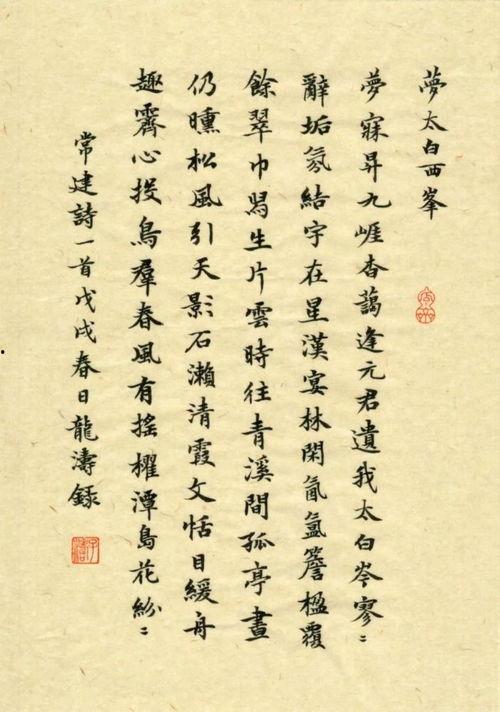 夢太白西峯
夢寐昇九崕杳藹逢元君遺我太白岑寥〻
辭垢氛結宇在星漢宴林閑氤氳簷楹覆
餘翠巾舄生片雲時往青溪間孤亭晝
仍曛松風引天影石瀨清霞文恬目緩舟
趣霽心投鳥羣春風有搖櫂潭島花紛〻
常建詩一首戊戌春日龍濤錄